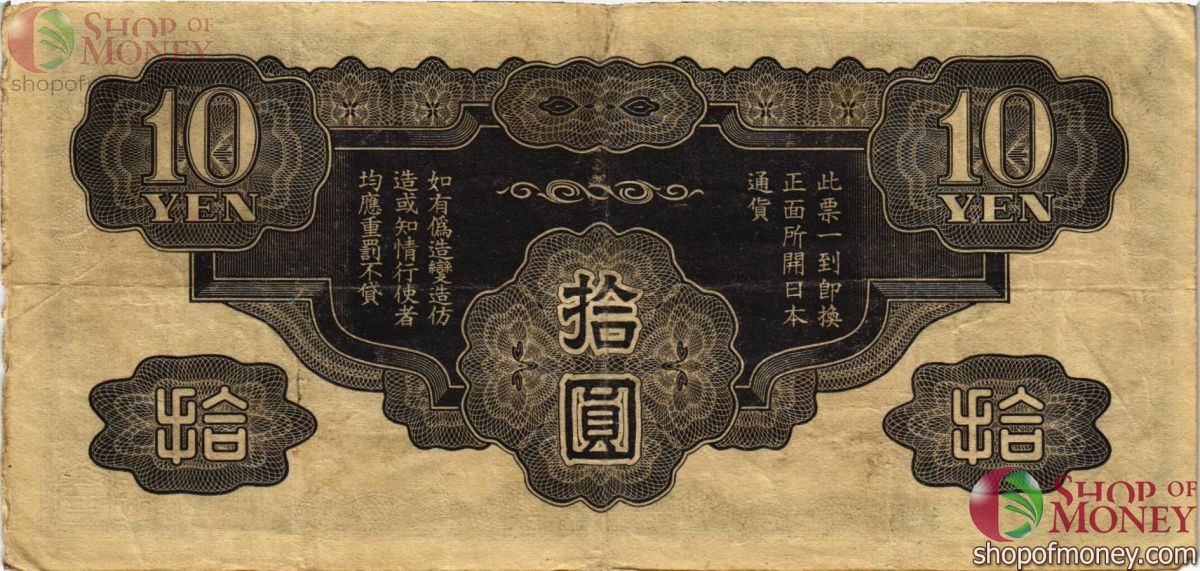 SHOP OF
MONEY
shopofm
10
YEN
10
YEN
此票一到即換
正面所開日本
通貨
如有偽造變造仿
造或知情行使者
均應重罰不貸
拾
圓
拾
拾
SHOP OF
MONEY
shopofmoney.com